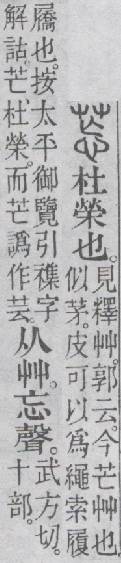 莣杜榮也。見釋艸。郭云。今芒艸也
似茅。皮可以爲繩索履
屩也。按太平御覽引襍字
解詁。芒杜榮。而芒譌作芸。
从艸。忘聲。武方切。
十部。